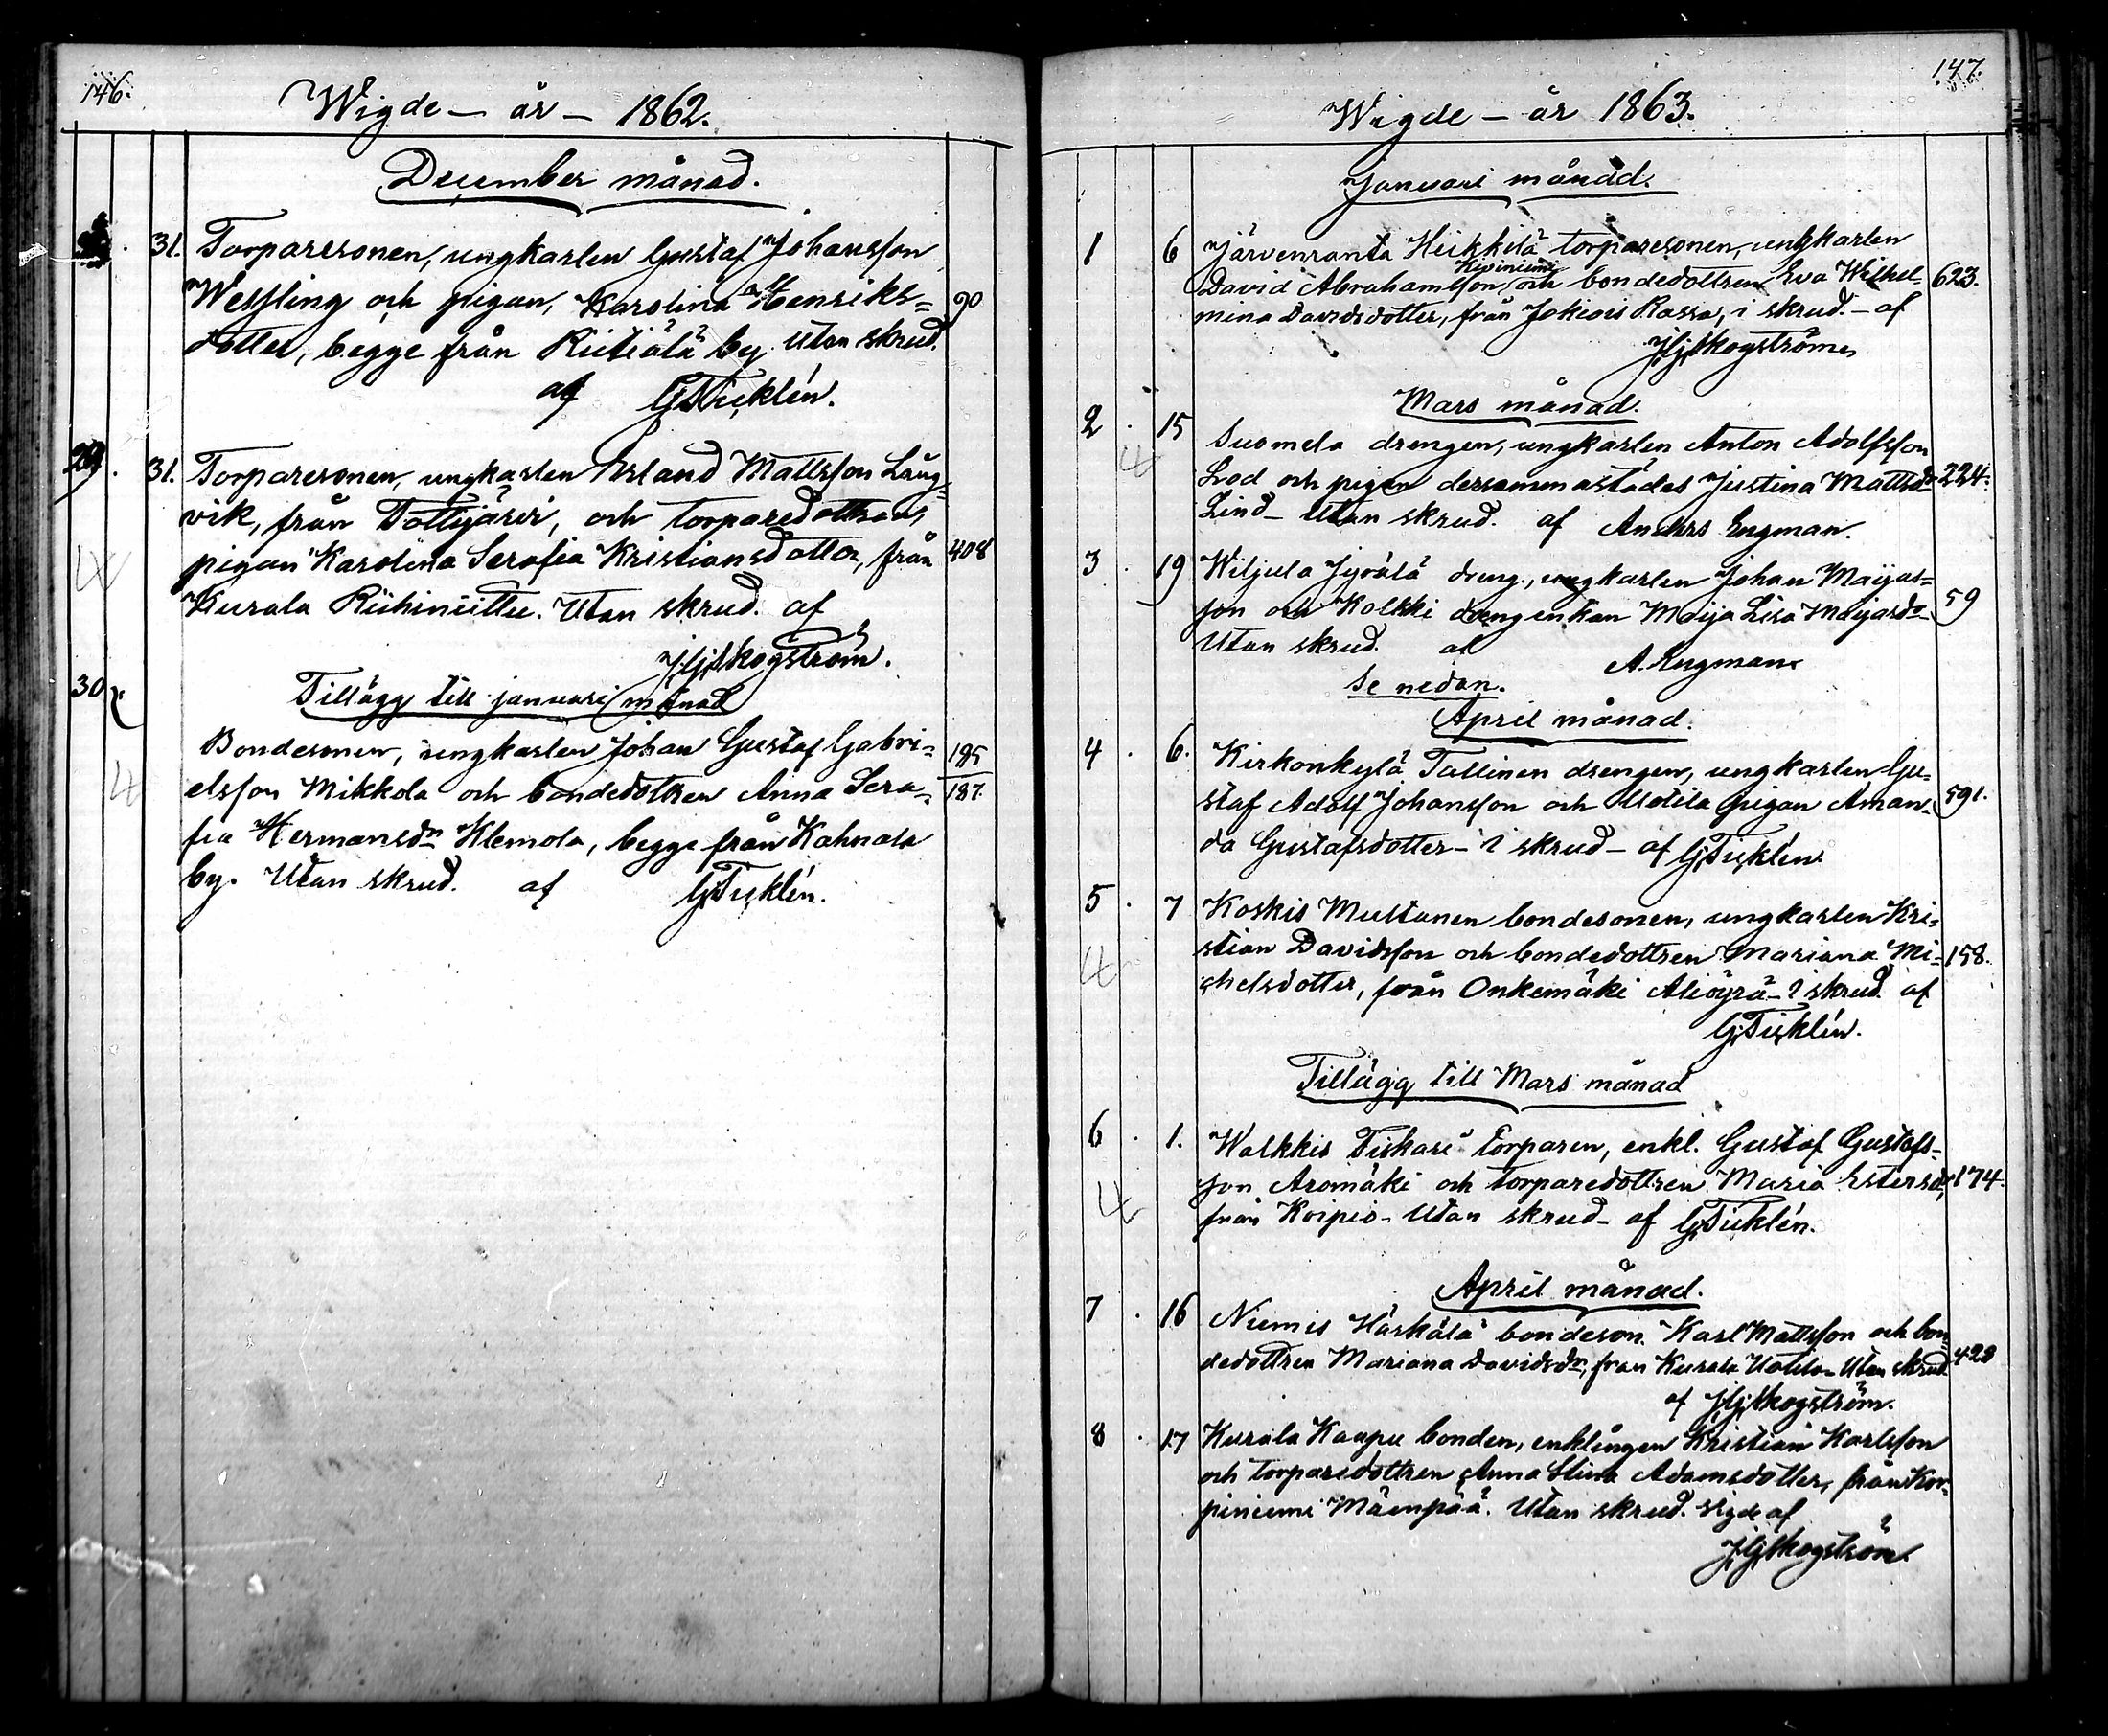 146.
Wigde - år - 1862.
December månad.
31. Torparesonen, ungkarlen Gustaf Johansson
Wessling och pigan, Karolina Henriks= 90
dotter, begge från Riitiälä by. Utan skrud.
af G Ticklén.
29. 31. Torparesonen, ungkarlen Erland Mattsson Lång=
vik, från Tottijärvi, och torparedottren,
pigan Karolina Serafia Kristiansdotter, från 408
Kurala Riihiniittu. Utan skrud. af
J G Skogström.
30 Tillägg till januari månad
Bondesonen, ungkarlen Johan Gustaf Gabri= 185
elsson Mikkola och bondedottren Anna Sera= 187.
fia Hermansdr Klemola, begge från Kahnala
by. Utan skrud. af G Ticklén.
147.
Wigde - år 1863.
Januari månad.
1 6 Järvenranta Heikkilä torparesonen, ungkarlen
Kiviniemi
David Abrahamsson och bondedottren Eva Wilhel= 623.
mina Davidsdotter, från Jokiois Rassa, i skrud. - af
J G Skogström
Mars månad.
2 . 15 Suomela drengen, ungkarlen Anton Adolfsson
Lod och pigan dersammastädes Justina Mattsdr 224.
Lind - Utan skrud. af Anders Engman.
3 . 19 Wiljula Jyrälä dreng., ungkarlen Johan Maijas=
son och Kolkki drengenkan Maija Lisa Maijasdr 59
Utan skrud. af A. Engman
Se nedan.
April månad.
4 . 6. Kirkonkylä Tallinen drengen, ungkarlen Gu=
staf Adolf Johansson och Uotila pigan Aman= 591.
da Gustafsdotter - i skrud - af G Ticklén.
5 . 7 Koskis Mustanen bondesonen, ungkarlen Kri=
stian Davidsson och bondedottren Mariana Mi= 158.
chelsdotter, från Onkemäki Alioÿrä - i skrud. af
G Ticklén.
Tillägg till Mars månad
6 . 1. Walkkis Tiskari torparen, enkl. Gustaf Gustafs=
son Aromäki och torparedottren Maria Estersdr, 174.
från Koipio - Utan skrud - af G Ticklén.
April månad.
7 . 16 Niemis Härkälä bondeson. Karl Mattsson och bon=
dedottren Mariana Davidsdr, från Kurala Uotila Utan skrud. 423
af J G Skogström.
8 . 17 Kurala Kaapu bonden, enklingen Kristian Karlsson
och torparedottren Anna Stina Adamsdotter, från Kor=
piniemi Mäenpää. Utan skrud. vigde af
J G Skogström.